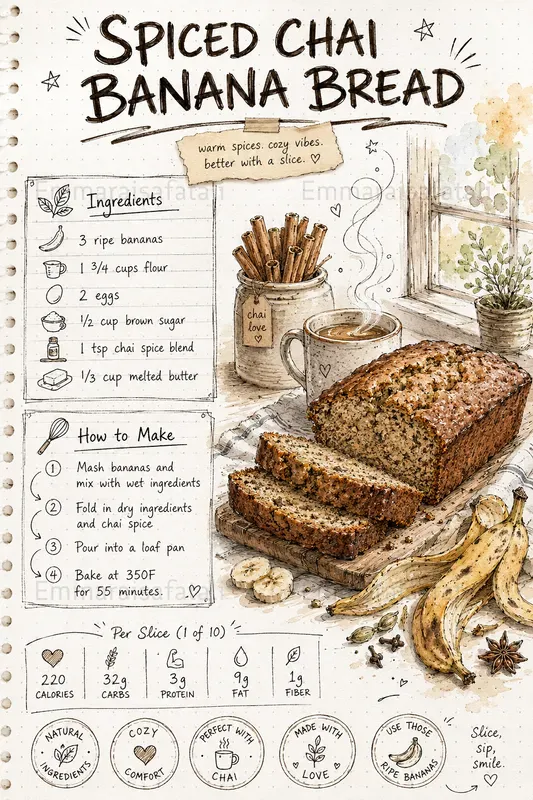 SPICED CHAI
BANANA BREAD
warm spices. cozy vibes.
better with a slice. ♡
Emmaraisafatah
Ingredients
3 ripe bananas
1 3/4 cups flour
2 eggs
1/2 cup brown sugar
1 tsp chai spice blend
1/3 cup melted butter
chai
love
How to Make
1 Mash bananas and
mix with wet ingredients
2 Fold in dry ingredients
and chai spice
3 Pour into a loaf pan
4 Bake at 350F
for 55 minutes.
Per Slice (1 of 10)
220
CALORIES
32g
CARBS
3g
PROTEIN
9g
FAT
1g
FIBER
NATURAL
INGREDIENTS
COZY
COMFORT
PERFECT WITH
CHAI
MADE WITH
LOVE
USE THOSE
RIPE BANANAS
Slice,
sip,
smile.